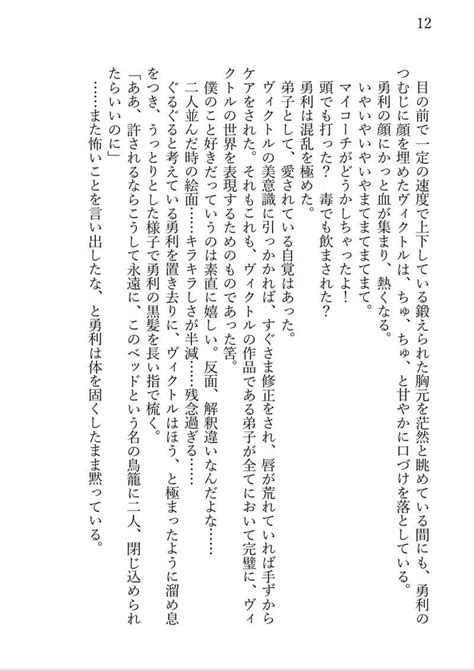 12
目の前で一定の速度で上下している鍛えられた胸元を茫然と眺めている間にも、勇利の
つむじに顔を埋めたヴィクトルは、ちゅ、ちゅ、と甘やかに口づけを落としている。
勇利の顔にかっと血が集まり、熱くなる。
いやいやいやいやまてまてまてまて。
マイコーチがどうかしちゃったよ！
頭でも打った？　毒でも飲まされた？
勇利は混乱を極めた。
弟子として、愛されている自覚はあった。
ヴィクトルの美意識に引っかかれば、すぐさま修正をされ、唇が荒れていれば手ずから
ケアをされた。それもこれも、ヴィクトルの作品である弟子が全てにおいて完璧に、ヴィ
クトルの世界を表現するためのものであった筈。
僕のこと好きだっていうのは素直に嬉しい。反面、解釈違いなんだよな……
二人並んだ時の絵面……キラキラしさが半減……残念過ぎる……
ぐるぐると考えている勇利を置き去りに、ヴィクトルはほう、と極まったように溜め息
をつき、うっとりとした様子で勇利の黒髪を長い指で梳く。
「ああ、許されるならこうして永遠に、このベッドという名の鳥籠に二人、閉じ込められ
たらいいのに」
……また怖いことを言い出したな、と勇利は体を固くしたまま黙っている。